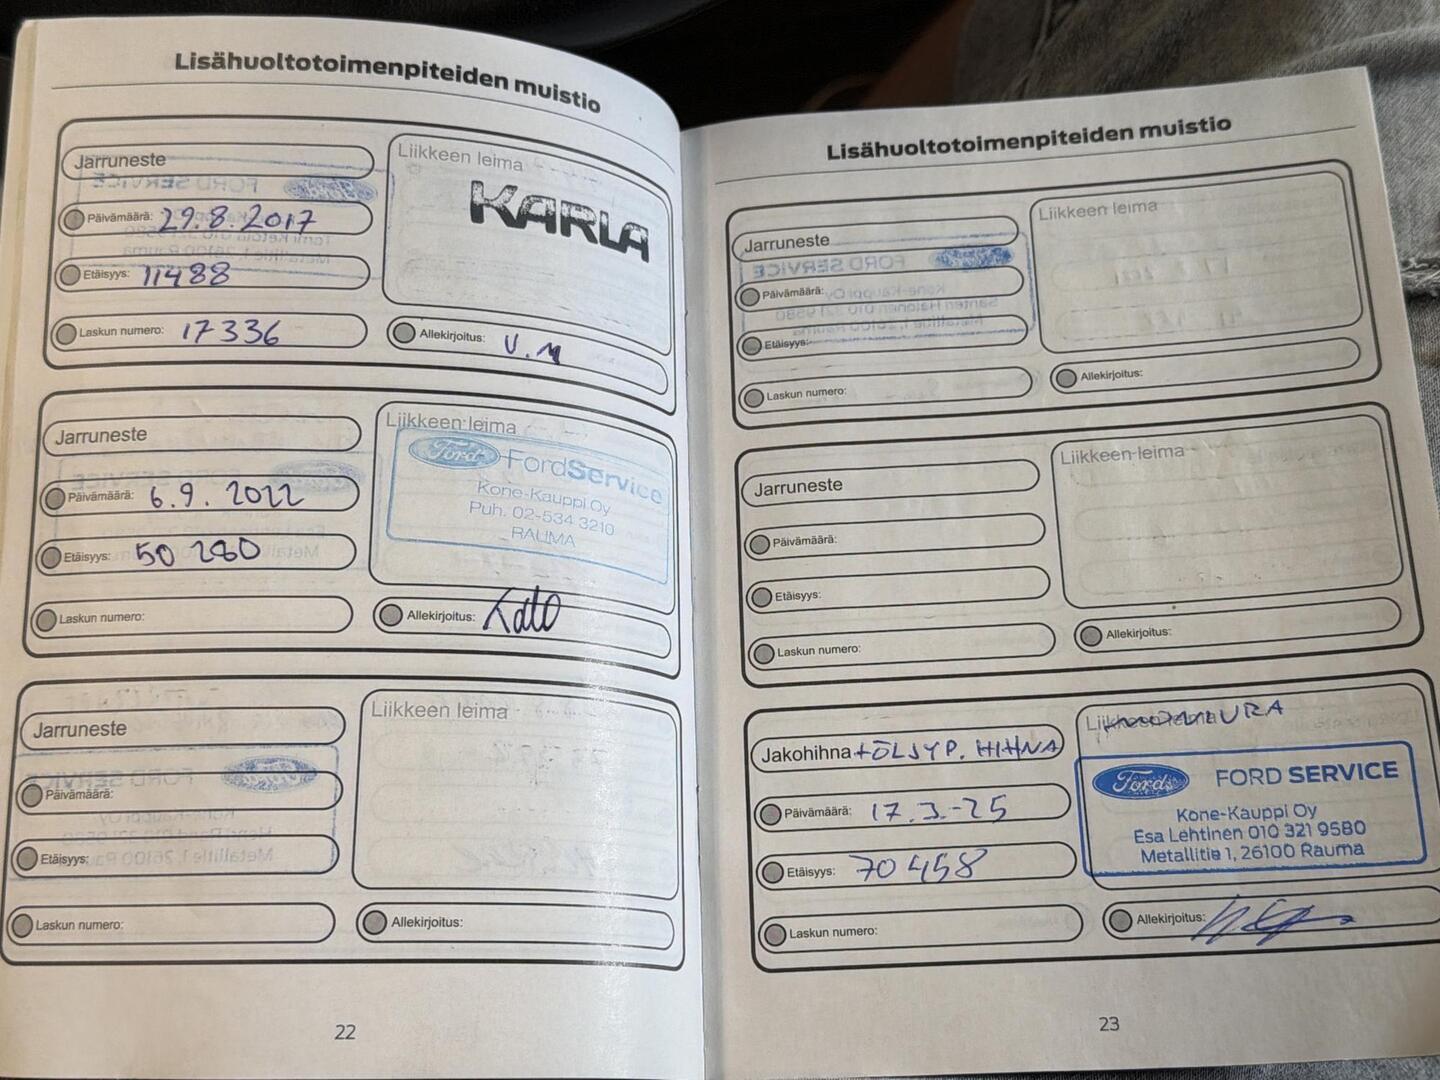 Lisähuoltotoimenpiteiden muistio
Jarruneste
Päivämäärä: 29.8.2017
Etäisyys: 11488
Laskun numero: 17336
Liikkeen leima
KARLA
Allekirjoitus: V.M
Jarruneste
Päivämäärä: 6.9.2022
Etäisyys: 50280
Laskun numero:
Liikkeen leima
Ford FordService
Kone-Kauppi Oy
Puh. 02-534 3210
RAUMA
Allekirjoitus:
Jarruneste
Päivämäärä:
Etäisyys:
Laskun numero:
Liikkeen leima
Allekirjoitus:
22
Lisähuoltotoimenpiteiden muistio
Jarruneste
Päivämäärä:
Etäisyys:
Laskun numero:
Liikkeen leima
Allekirjoitus:
Jarruneste
Päivämäärä:
Etäisyys:
Laskun numero:
Liikkeen leima
Allekirjoitus:
Jakohihna + ÖLJYP. HIHNA
Päivämäärä: 17.3.-25
Etäisyys: 70458
Laskun numero:
Liikkeen leima
Ford FORD SERVICE
Kone-Kauppi Oy
Esa Lehtinen 010 321 9580
Metallitie 1, 26100 Rauma
Allekirjoitus:
23